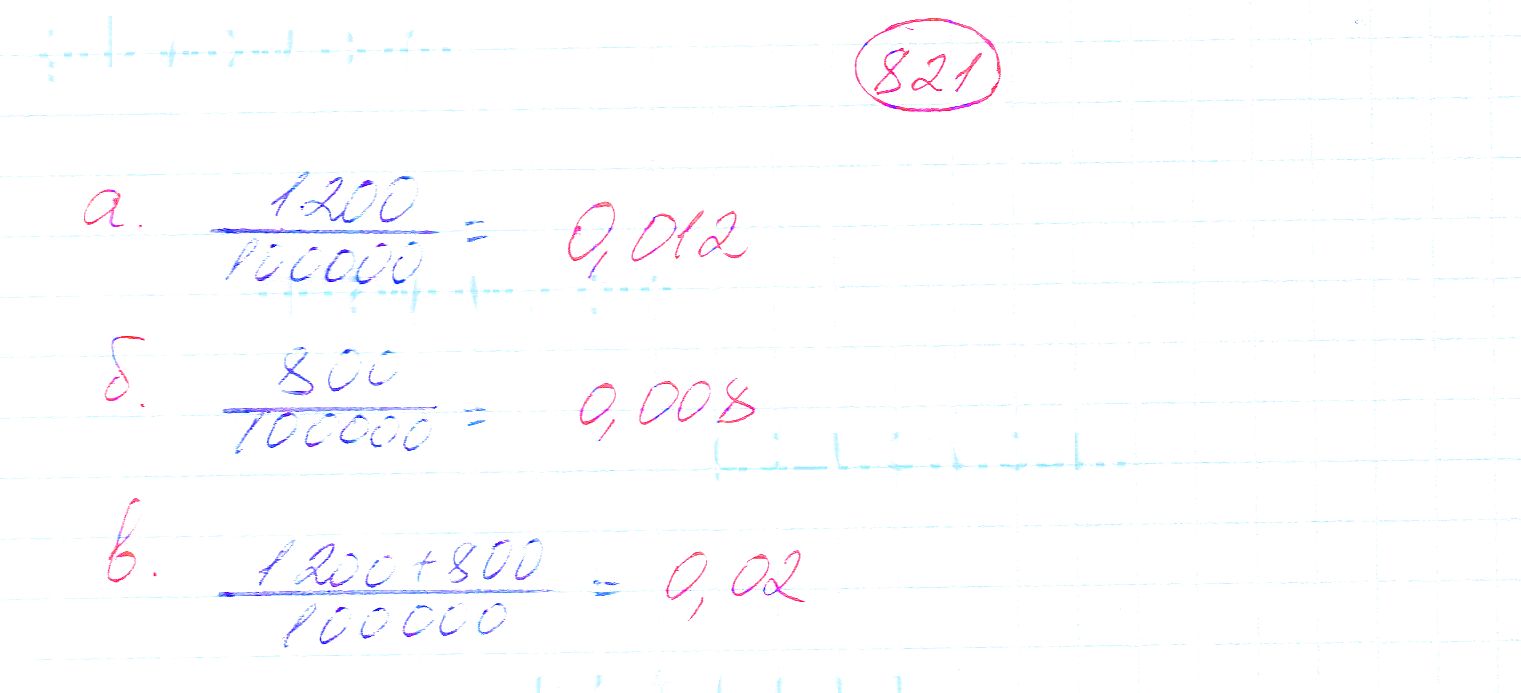 821
а. 1200/100000 = 0,012
б. 800/100000 = 0,008
в. 1200+800/100000 = 0,02